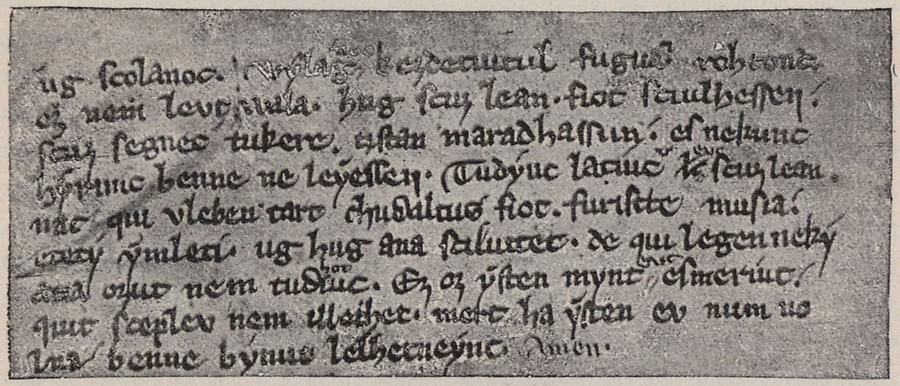 ug scolanoc. uilag kezdetuitul fugua rohtonc
ez nem levt uula. hug scuz lean. fiot sciulhessen.
scuz segnec tukere. tistan maradhassun. es nekunc
hyrunc benne ne leyessen. Tudyuc latiuc evt scuz lean
nac qui vleben tart chudaltus fiot. furiscte musia.
etety ymleti. ug hug ana sciluttet. de qui legen neky
atia ozut nem tudhotiuc. Ez oz ysten mynt evt esmeriuc.
quit sceplev nem illethet. mert ha ysten ev num uo
lna benne bynut lelhetneync. Amen.